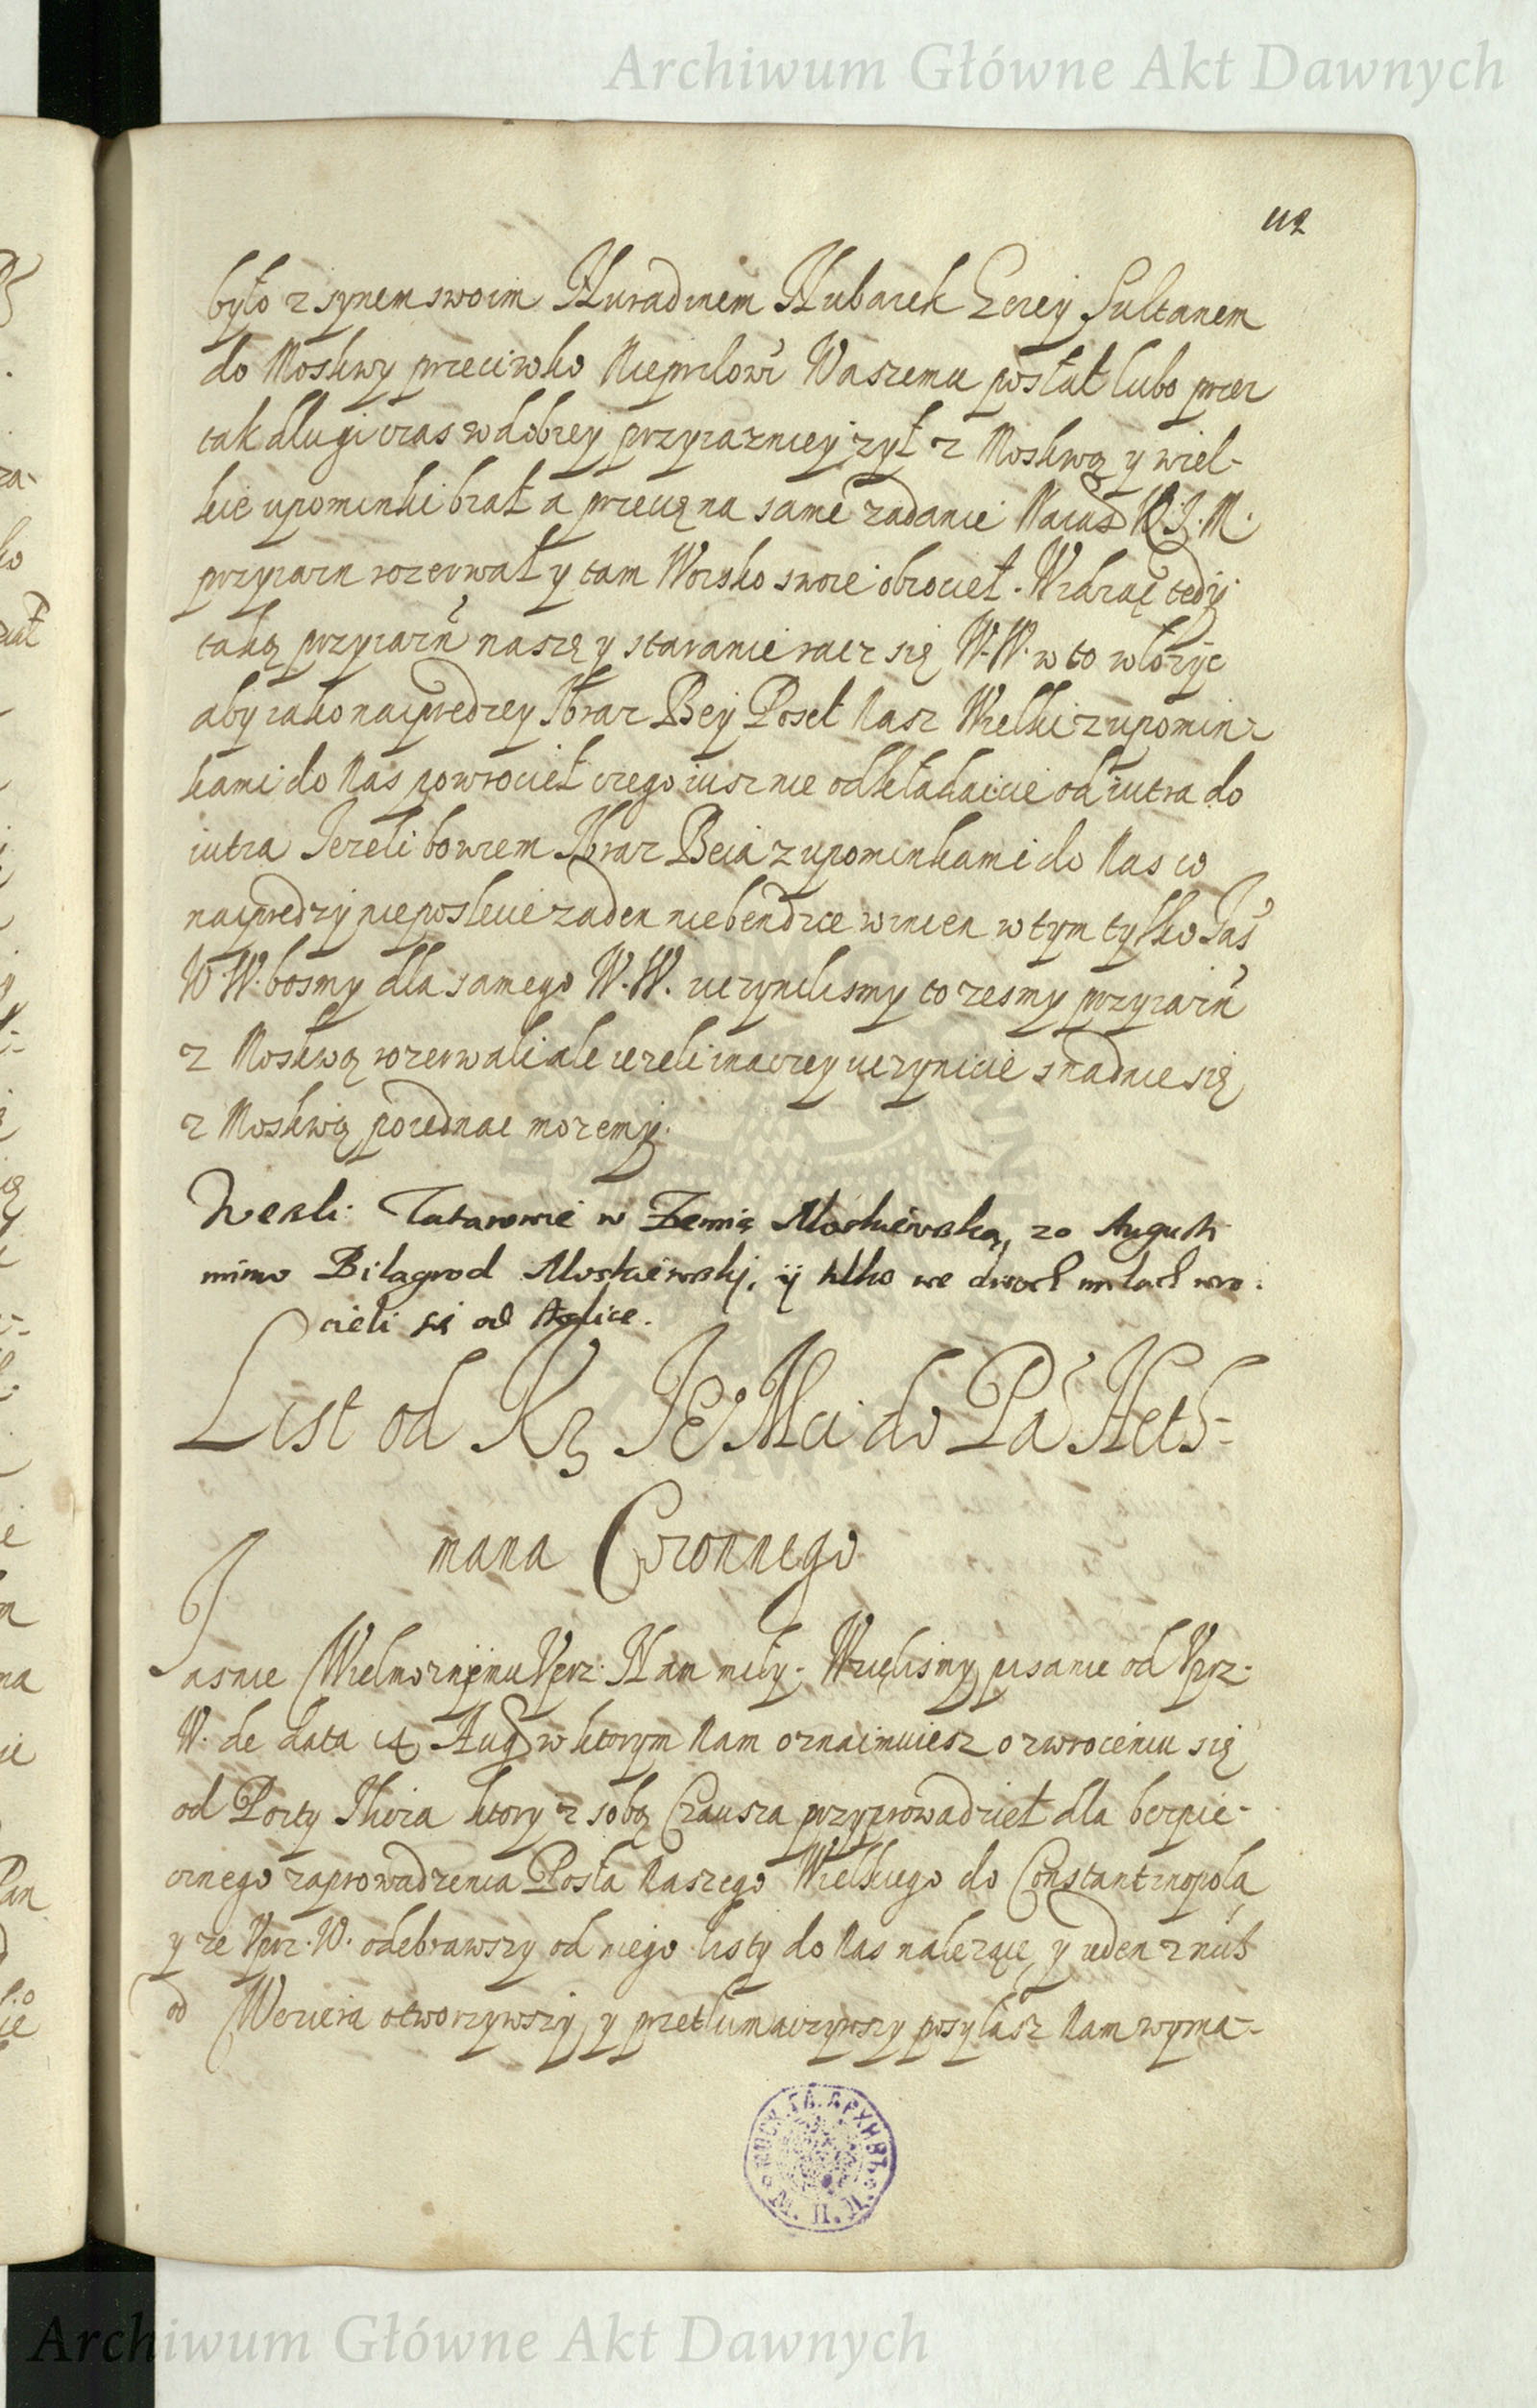 Archiwum Główne Akt Dawnych
112
było z synem swoim Nuradinem Mubarek Gerej Sułtanem
do Moskwy przeciwko Nieprlowi Waszemu posłał lubo przez
tak długi czas w dobrey przyiazniey zył z Moskwą y wiel-
kie upominki brał a przecię na same żądanie Naias K.J.M.
przyiazn rozerwał y tam Woisko swoie obrocieł. Widząc tedy
taką przyiazń naszę y staranie racz się W.W. w to włożyc
aby iako naiprędzey Ibraz Bey Poseł Nasz Wielki z upomin-
kami do Nas powrocieł czego iusz nie odkładaicie od iutra do
iutra Jezeli bowiem Ibraz Beia z upominkami do Nas co
naiprędzy nie poslecie zaden niebendzie winien w tym tylko Jaś
W.W. bosmy dla samego W.W. uczynilismy to zesmy przyiazń
z Moskwą rozerwali ale iezeli inaczey uczynicie snadnie się
z Moskwą poiednac mozemy.
Weszli Tatarowie w Zemię Moskiewską, 20 Augusti
mimo Bilagrod Moskiewski, y tilko we dwoch milach wro-
cieli się od stolice.
List od Kr JE Mci do Pa Het-
mana Coronnego
Jasnie Wielmoznemu Uprz. Nam miły. Wzięlismy pisanie od Uprz.
W. de data 14 Aug w ktorym Nam oznaimuiesz o zwroceniu się
od Porty Ilicza ktory z sobą Czausza przyprowadzieł dla bezpie-
cznego zaprowadzenia Posła Naszego Wielkiego do Constantinopola
y ze Uprz. W. odebrawszy od niego listy do Nas nalezące, y ieden z nich
od Wezira otworzywszy y przetlumaczywszy posyłasz Nam wyma-
Archiwum Główne Akt Dawnych